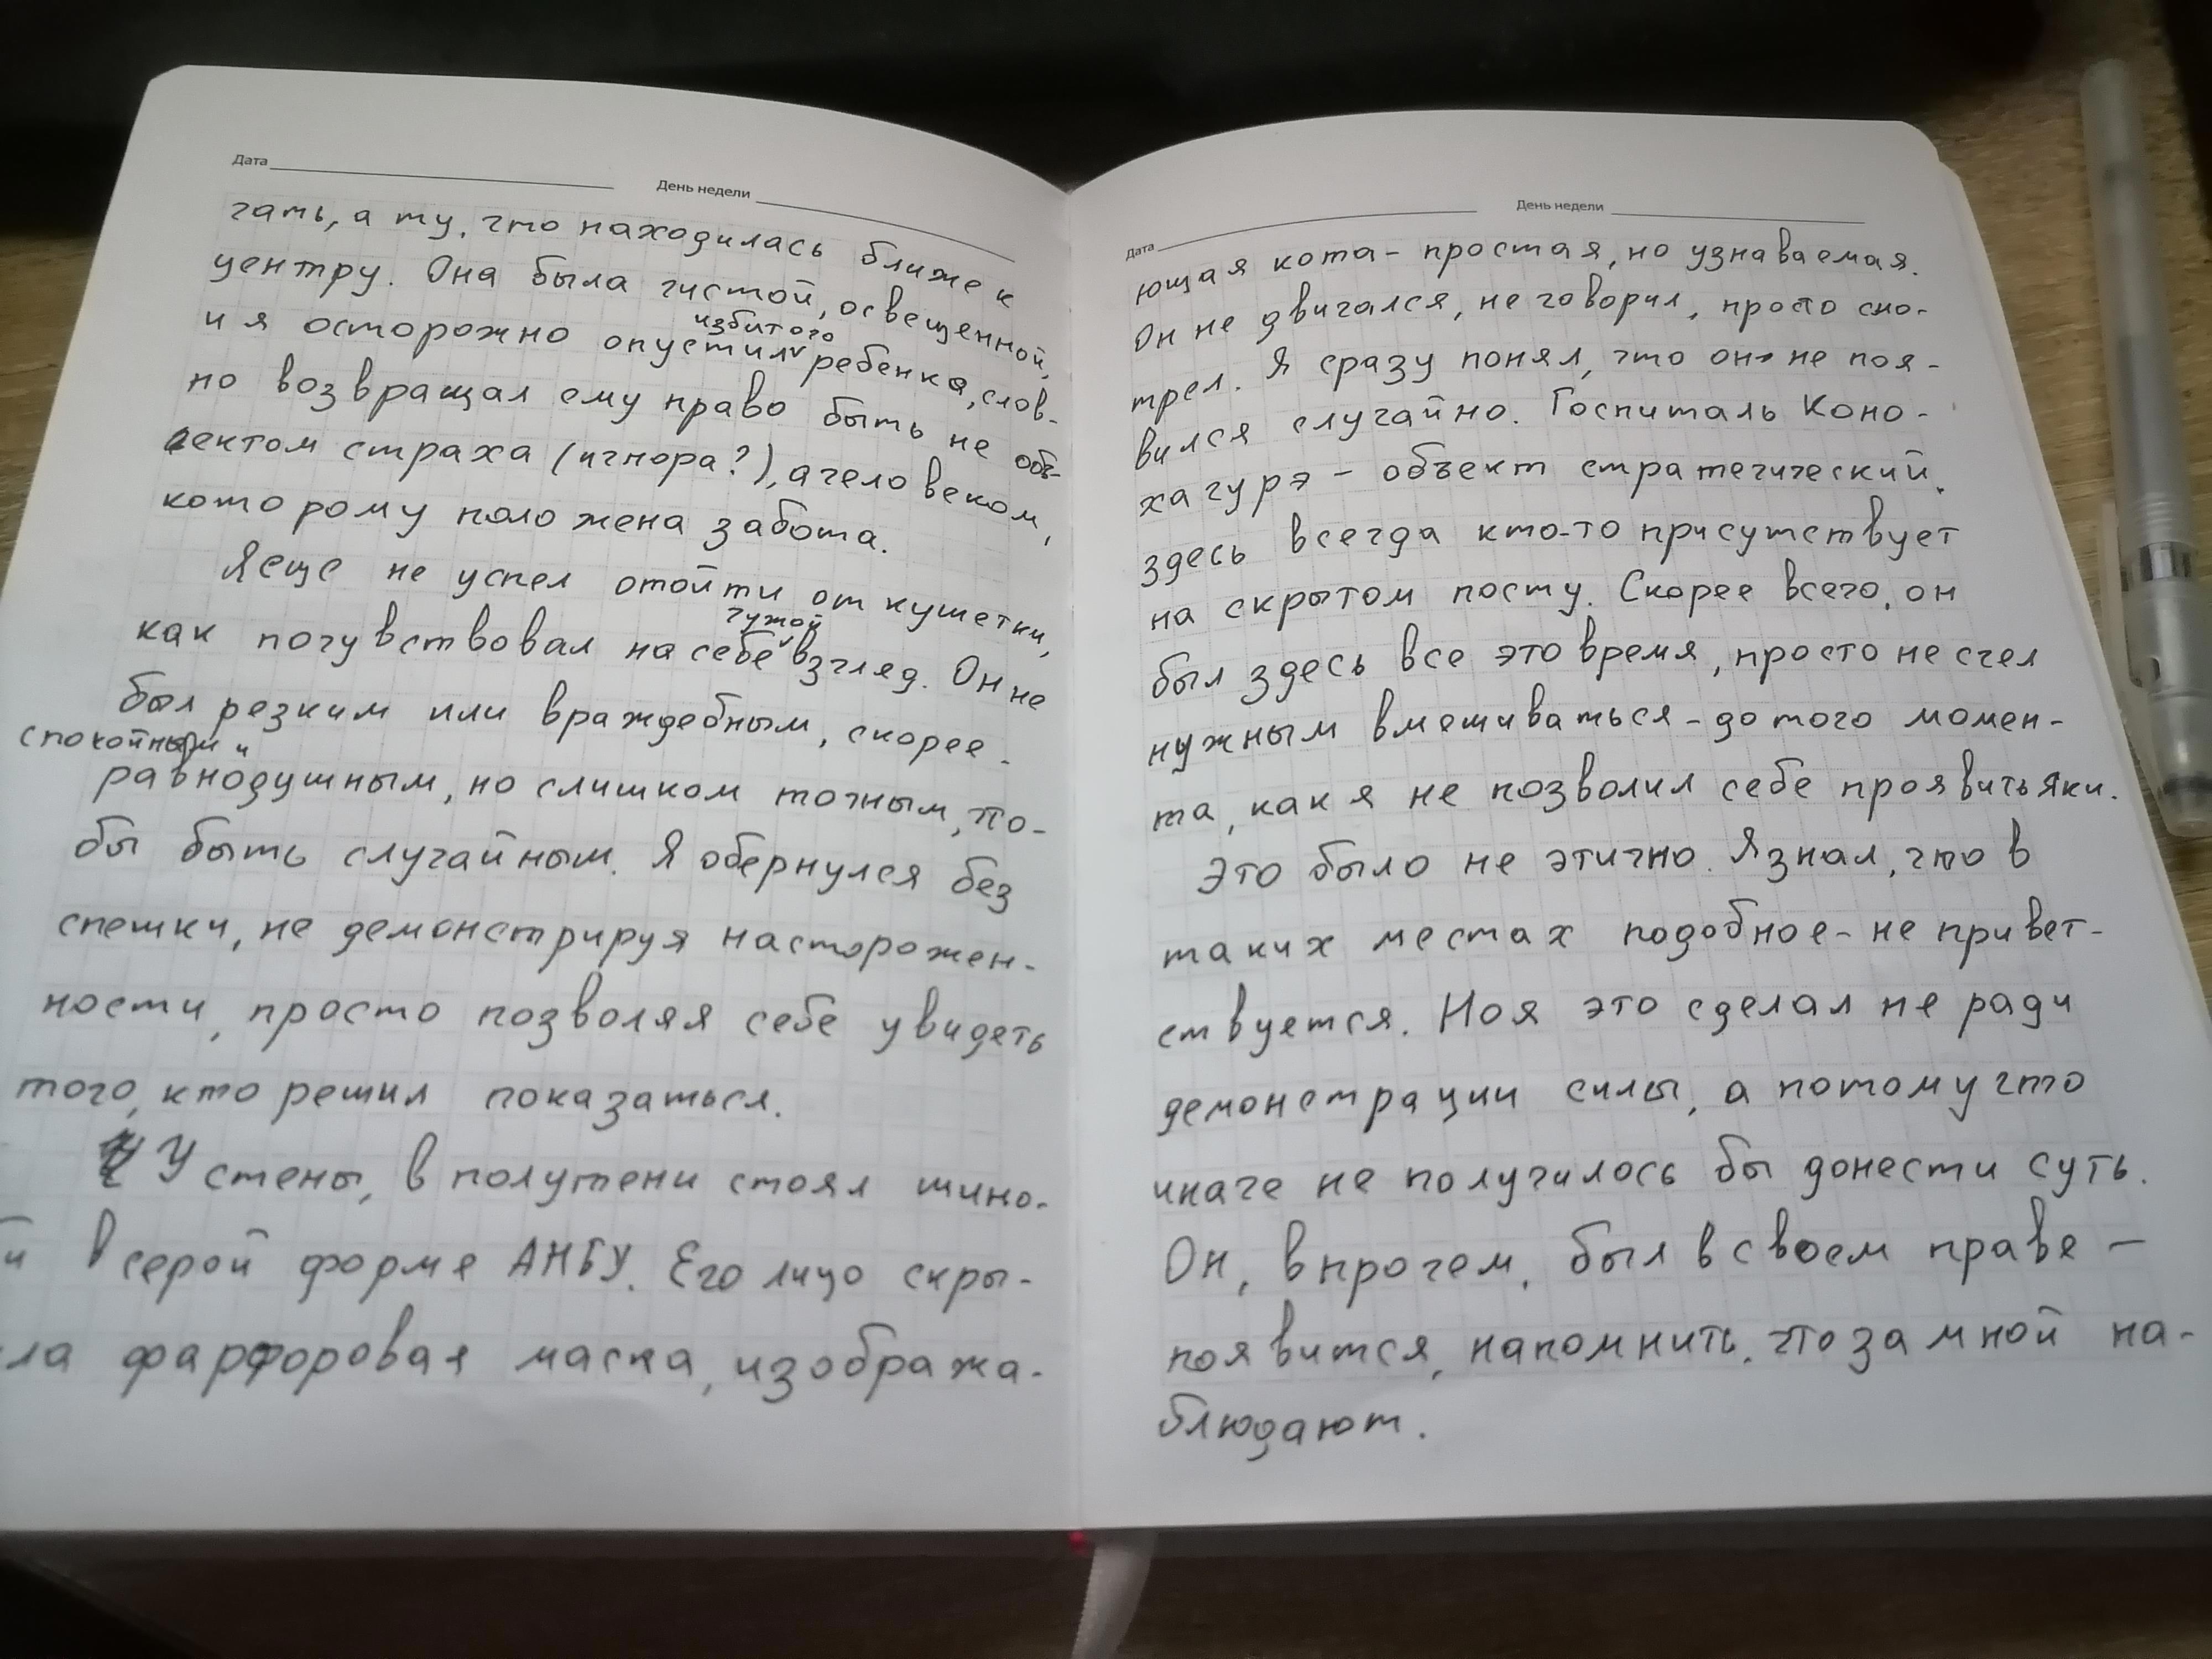 Дата
День недели
чать, а ту, что находилась ближе к
центру. Она была чистой, освещенной,
и я осторожно опустил избитого ребенка, слов-
но возвращал ему право быть не объ-
ектом страха (игнора?), а человеком,
которому положена забота.
Я еще не успел отойти от кушетки,
как почувствовал на себе чужой взгляд. Он не
был резким или враждебным, скорее -
спокойным и
равнодушным, но слишком точным, что-
бы быть случайным. Я обернулся без
спешки, не демонстрируя насторожен-
ности, просто позволяя себе увидеть
того, кто решил показаться.
У стены, в полутени стоял шино-
й в серой форме АНБУ. Его лицо скры-
ла фарфоровая маска, изобража-
Дата
День недели
ющая кота - простая, но узнаваемая.
Он не двигался, не говорил, просто смо-
трел. Я сразу понял, что он не поя-
вился случайно. Госпиталь Коно-
хагурэ - объект стратегический,
здесь всегда кто-то присутствует
на скрытом посту. Скорее всего, он
был здесь все это время, просто не счел
нужным вмешиваться - до того момен-
та, как я не позволил себе проявить Яки.
Это было не этично. Я знал, что в
таких местах подобное - не привет-
ствуется. Но я это сделал не ради
демонстрации силы, а потому что
иначе не получилось бы донести суть.
Он, впрочем, был в своем праве —
появится, напомнить, что за мной на-
блюдают.